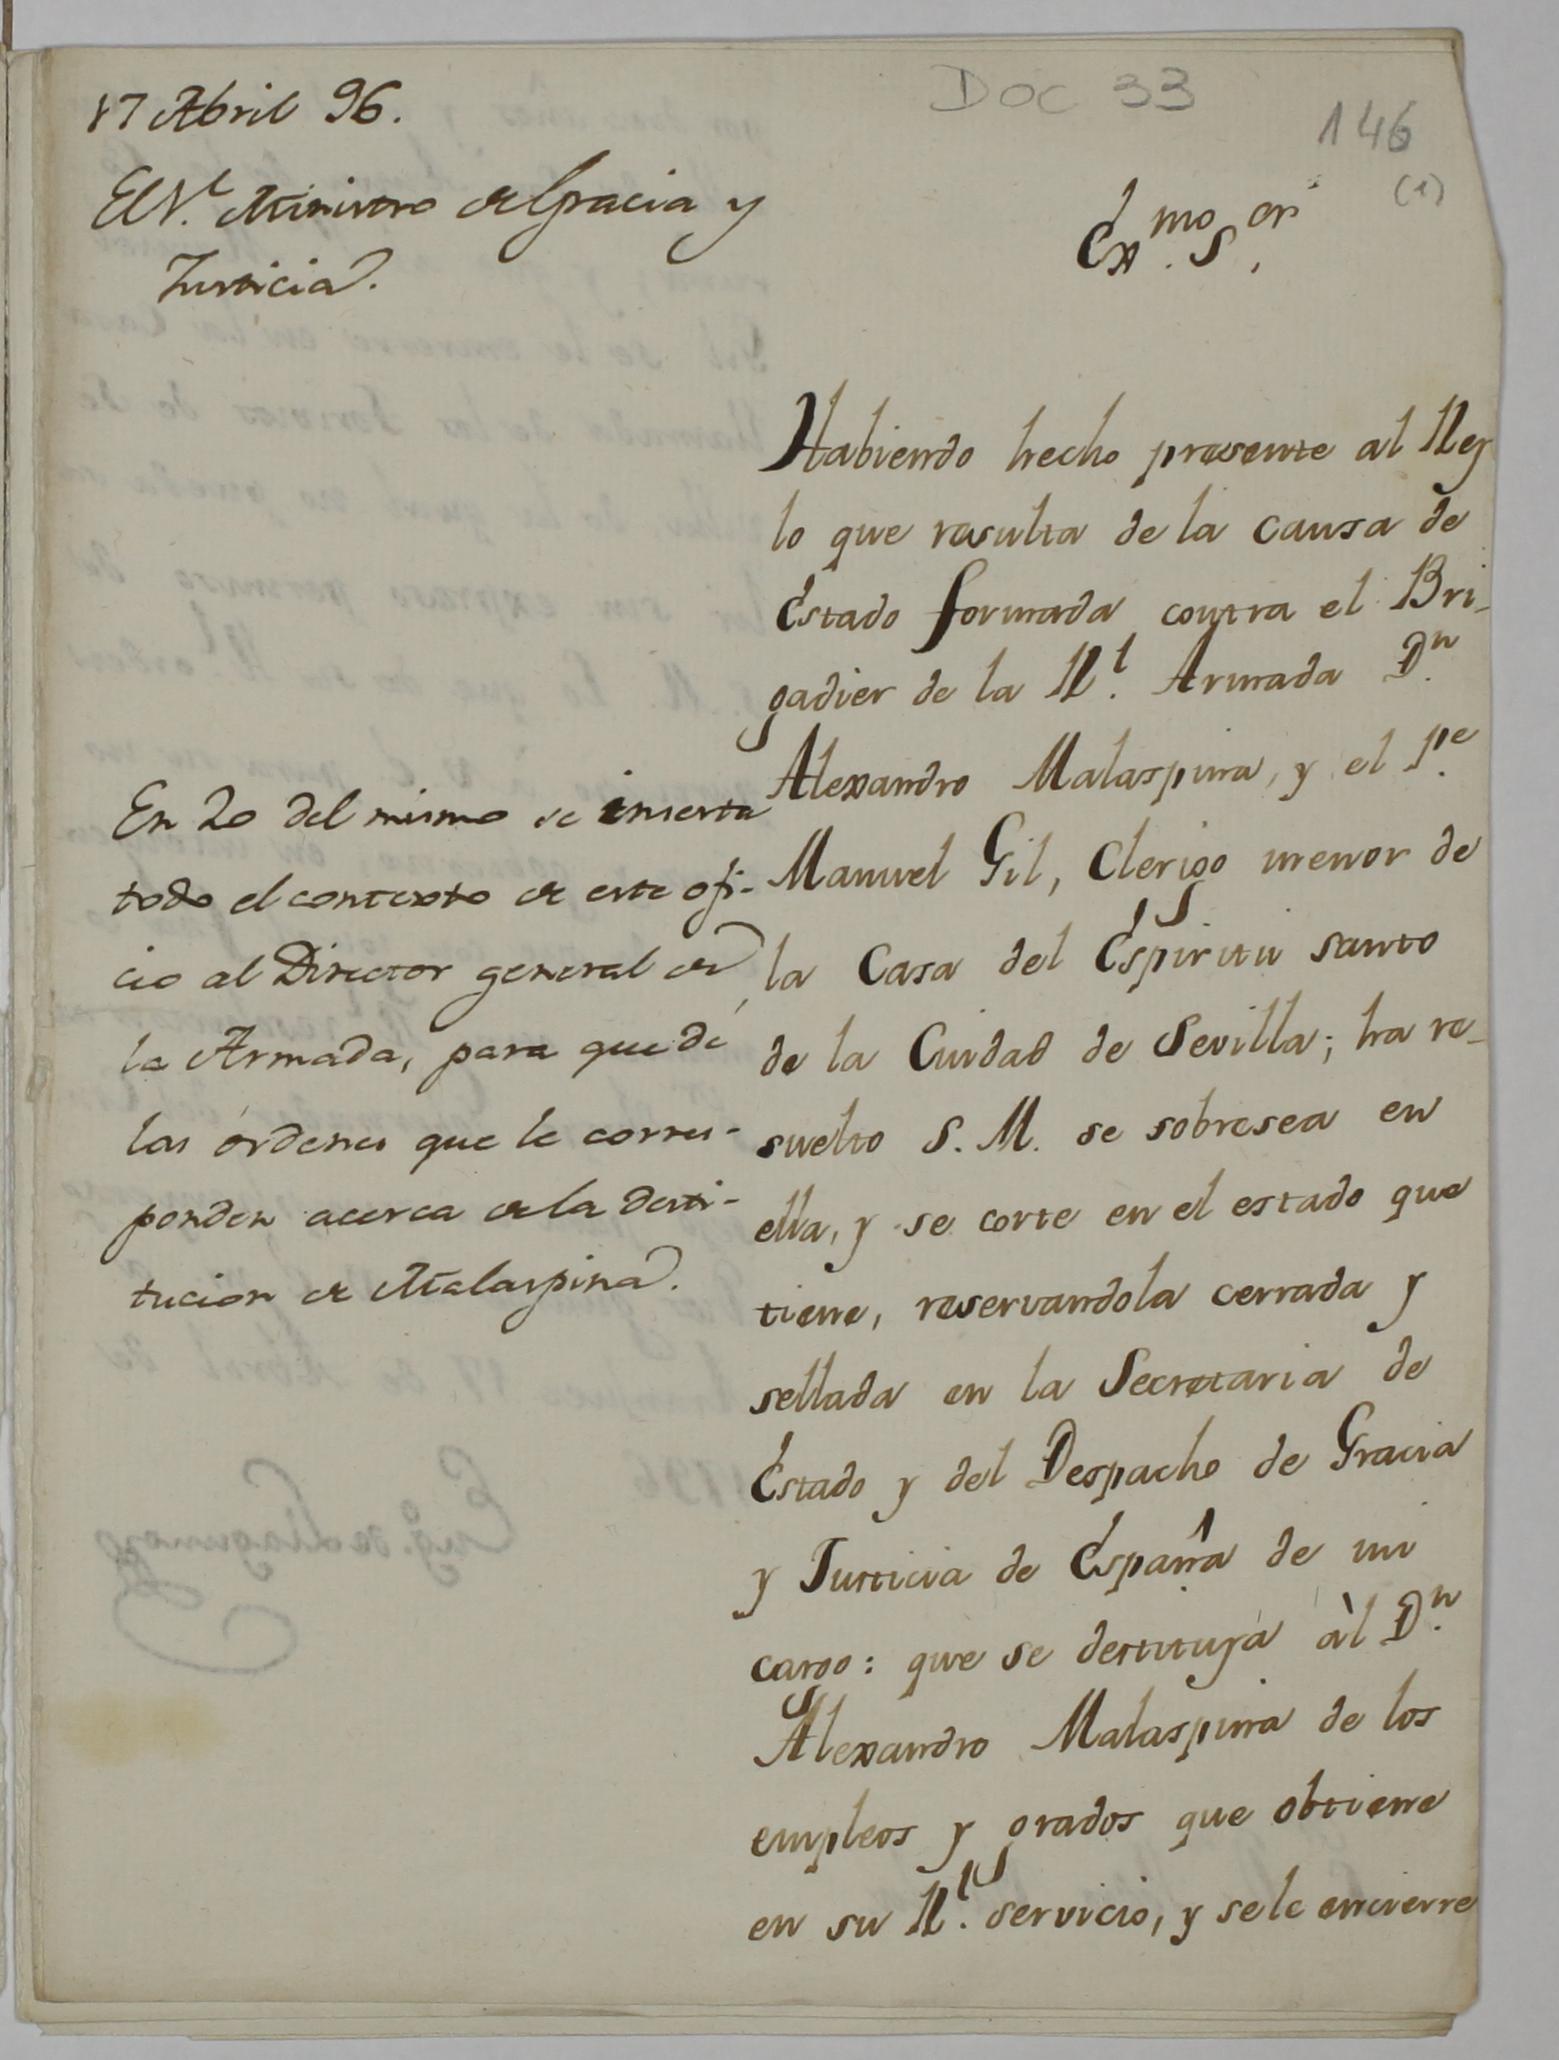 17 Abril 96.
El S.r Ministro de Gracia y
Justicia.
DOC 33
146
(1)
Ex.mo S.or
Habiendo hecho presente al Rey
lo que resulta de la causa de
Estado formada contra el Bri-
gadier de la R.l Armada D.n
Alexandro Malaspina, y el P.e
Manuel Gil, Clerigo menor de
la Casa del Espiritu santo
de la Ciudad de Sevilla; ha re-
suelto S. M. se sobresea en
ella, y se corte en el estado que
tiene, reservandola cerrada y
sellada en la Secretaria de
Estado y del Despacho de Gracia
y Justicia de España de mi
cargo: que se destituya àl D.n
Alexandro Malaspina de los
empleos y grados que obtiene
en su R.l servicio, y se le encierre
En 20 del mismo se inserta
todo el contexto de este ofi-
cio al Director general de
la Armada, para que dé
las órdenes que le corres-
ponden acerca de la desti-
tucion de Malaspina.